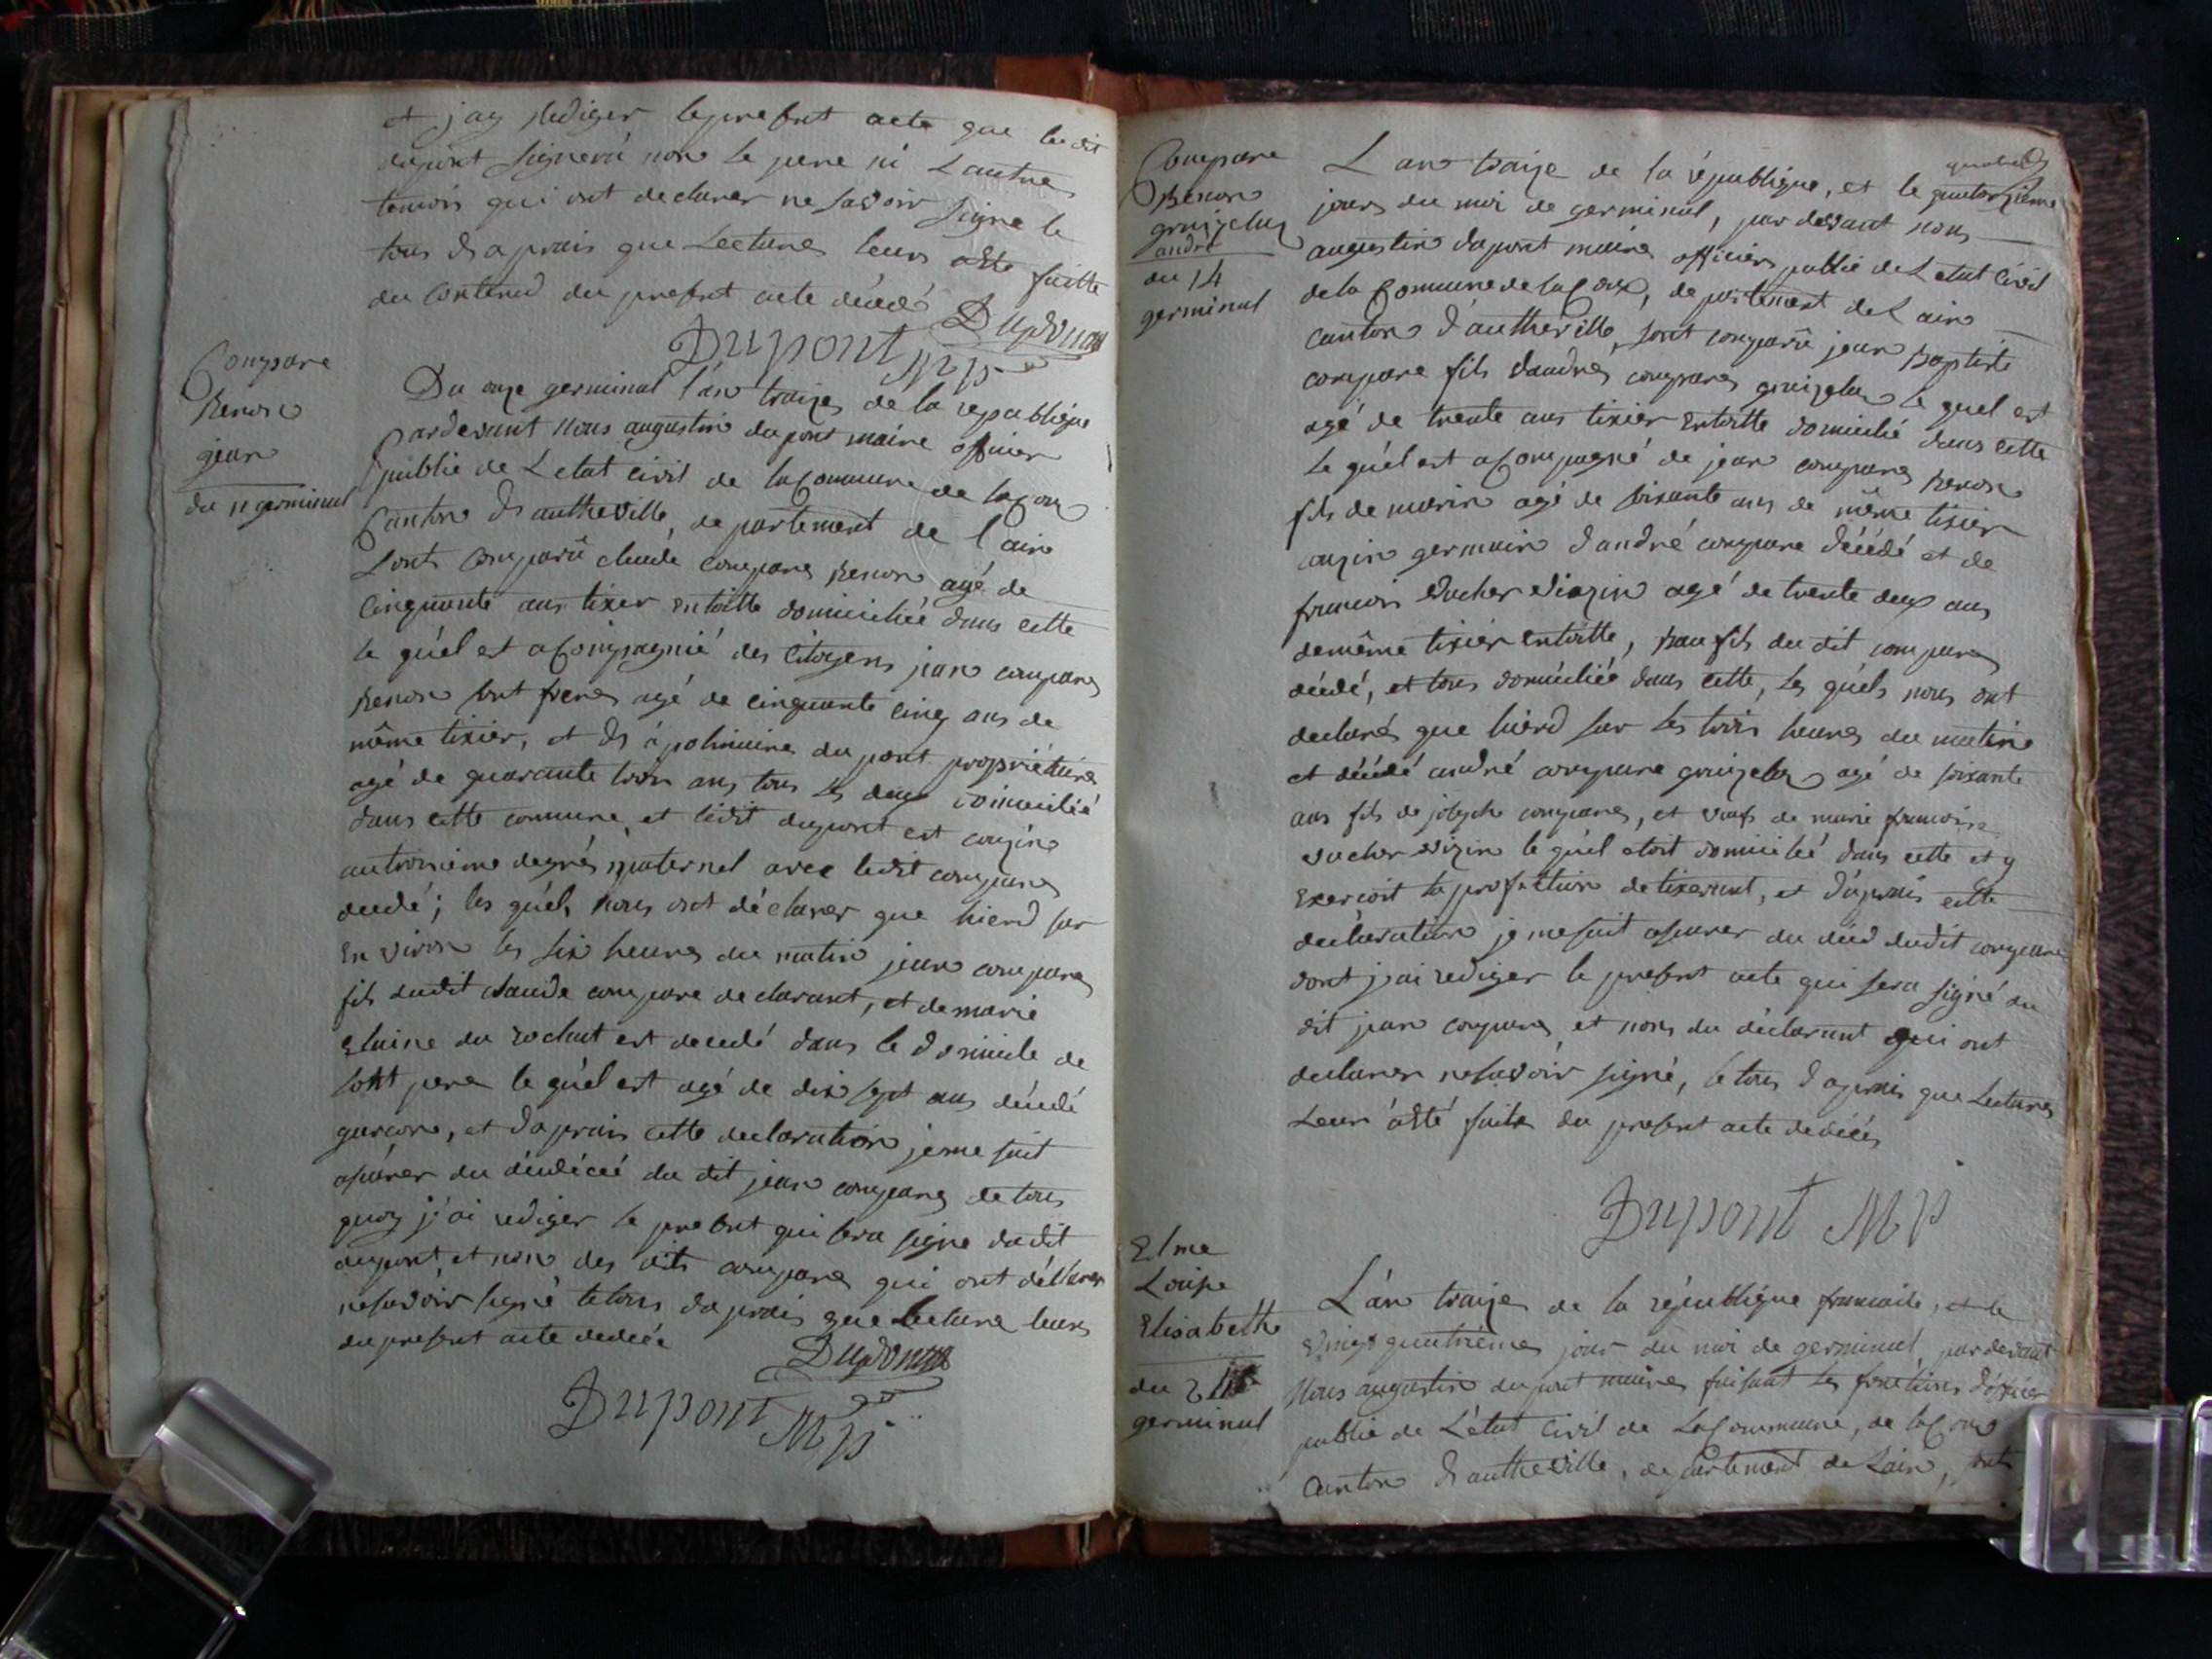 et jay rediger le present acte que le dit
dupont signera non le pere ni L autre
temoin qui ont declarer ne savoir signe le
tous d aprais que Lecture leurs este faitte
du contenu du present acte décedé
Dupont mp
Compare
Renon
jean
du 11 germinal
Du onze germinal l'an traize de la republique
Pardevant nous augustin dupont maire officier
public de L etat civil de la Commune de lacoux
Canton d'autheville, departement de l'ain
Sont comparû claude compare Renon agé de
Cinquante ans tixier en toille domicilié dans cette
le quél est acompagnié des citoyens jean compare
Renon sont frere agé de cinquante cinq ans de
même tixier, et d'apolinaire dupont propriétaire
agé de quarante trois ans tous les deux domicilié
dans cette commune et ledit dupont est couzin
autroisieme degrés maternel avec ledit compare
decdé; les quéls nous ont déclarer que hierd sur
En viron les six heures du matin jean compare
fils dudit claude compare declarant, et de marie
du rochat est decedé dans le domicile de
sont pere le quél est agé de dix sept ans décedé
garcon, et d'aprais cette declaration je me suit
asurer du du dit jean compare de tous
quoy j'ai rediger le present qui sera signe dudit
dupont, et non des dits compare qui ont déclarer
nesavoir signé letous d'aprais que Lecture leurs
du present acte
Dupont mp
Compare
Renon
andré
du 14
germinal
L an traize de la république, et le quatorzieme
jours du moi de germinal, par devant nous
augustin dupont maire officier public de L etat civil
de la Commune de lacoux, departement de L ain
canton d'autheville, sont comparû jean Baptiste
compare fils d'andré compare le quel est
agé de trente ans tixier Entoille domicilié dans cette
le quél est acompagné de jean compare Renon
fils de marin agé de soixante ans de même tixier
couzin germain d'andré compare décédé et de
francois agé de trente deux ans
demême tixier entoille, beau fils du dit compare
décédé, et tous domicilié dans cette, les quéls nous ont
declaré que hierd sur les trois heures du matin
et décédé andré compare agé de soixante
ans fils de joseph compare, et veuf de marie francoise
le quél etoit domicilié dans cette et y
Exercoit la profession de tixerant, et d'aprais cette
declaration je me suit asurer du déed dudit compare
dont j'ai rediger le present acte qui sera signé du
dit jean compare, et nons du déclarant qui ont
declarer nesavoir signé, le tous d'aprais que Lecture
Leur aété faite du present acte
Dupont MP
Elme
Louise
Elisabeth
du
germinal
L'an traize de la république francaise, et le
vingt quatrième jour du moi de germinal, par devant
Nous augustin dupont maire faisant les fonctions d'officier
public de L'état Civil de La Commune, de lacoux
Canton d'autheville, departement de Lain, sont